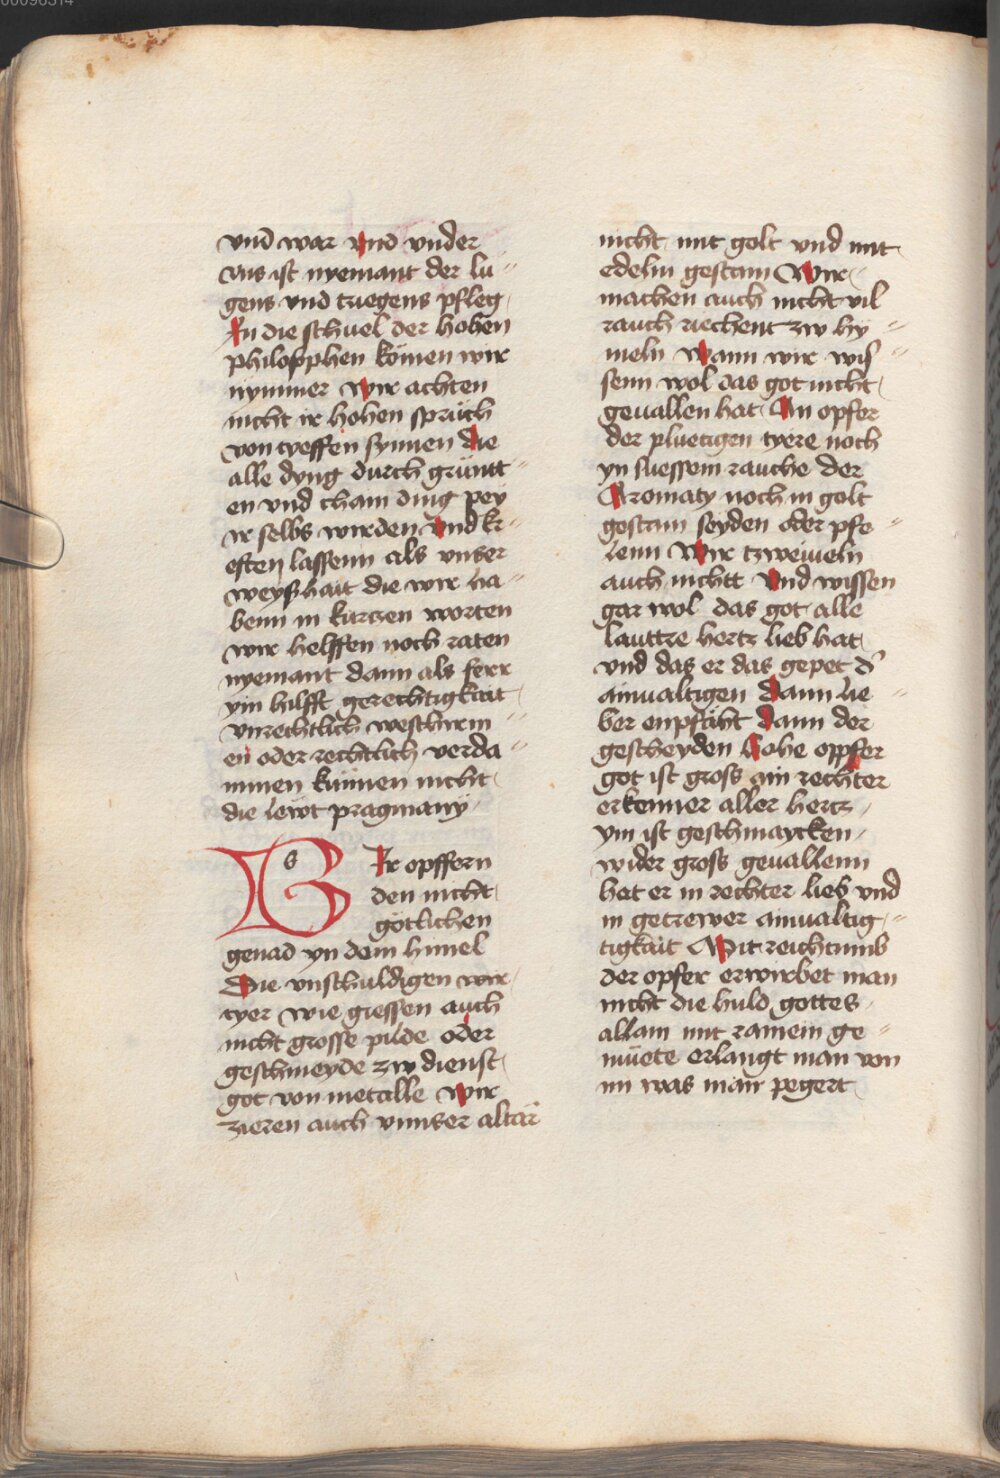 00096314
vnd war vnd vnder
vns ist nyemant der lu
gens vnd triegens pfleg
In die schuel der hohen
philosophen kömen wir
nymmer Wir achten
nicht ir hohen sprüch
von tyeffen synnen die
alle dyng durch grüntt
en vnd cham ding pey
ir selbs wirden vnd kr
eften lassenn als vnser
weyshait die wir ha
benn in kurtzen worten
wir helffen noch raten
nyemant dann als ferr
yin hilfft gerechtigkait
vnrechtlich weschirm
en oder rechtlich verda
mmen künnen nicht
die lewt pragmany
Ir opffern
den nicht
götlichen
genad yn dem himel
Die vnschuldigen wir
tyer wie giessen auch
nicht grosse pilde oder
geschmeyde zw dienst
got von metalle Wir
zieren auch vnnser altar
nicht mit golt vnd mit
edelm gestain Wir
machen auch nicht vil
rauch riechent zw hy
meln Wann wir wis
senn wol das got nicht
geuallen hat An opfer
der pluetigen tyere noch
yn suessem rauche der
Aromaty noch in golt
gestain seyden oder pfe
lenn Wir tzweiueln
auch nichtt vnd wissen
gar wol das got alle
lauttre hertz lieb hat
vnd das er das gepet d'
ainualtigen Dann lie
ber enpfäht Dann der
gescheyden hohe oppfer
got ist gross ain rechter
erkenner aller hertz
ym ist geschmaycken
wider gross geuallenn
hat er in rechter lieb vnd
in getrewer ainualtig
tigkait Mit reichtumb
der opfer erwirbet man
nicht die huld gottes
allain mit rainem ge
müete erlangt man von
im was man pegert